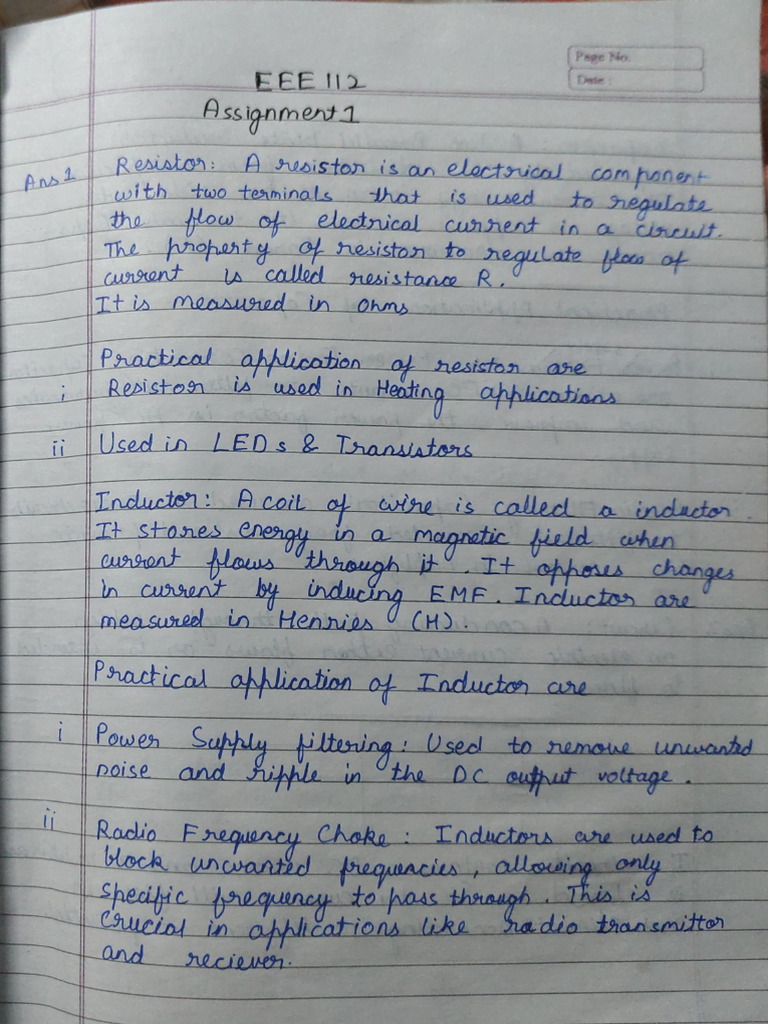 Page No.
Date :
EEE 112
Assignment 1
Ans 1 Resistor: A resistor is an electrical component
with two terminals that is used to regulate
the flow of electrical current in a circuit.
The property of resistor to regulate flow of
current is called resistance R.
It is measured in ohms
Practical application of resistor are
i Resistor is used in Heating applications
ii Used in LEDs & Transistors
Inductor: A coil of wire is called a inductor.
It stores energy in a magnetic field when
current flows through it. It opposes changes
in current by inducing EMF. Inductor are
measured in Henries (H).
Practical application of Inductor are
i Power Supply filtering: Used to remove unwanted
noise and ripple in the DC output voltage.
ii Radio Frequency Choke: Inductors are used to
block unwanted frequencies, allowing only
specific frequency to pass through. This is
crucial in applications like radio transmittor
and reciever.